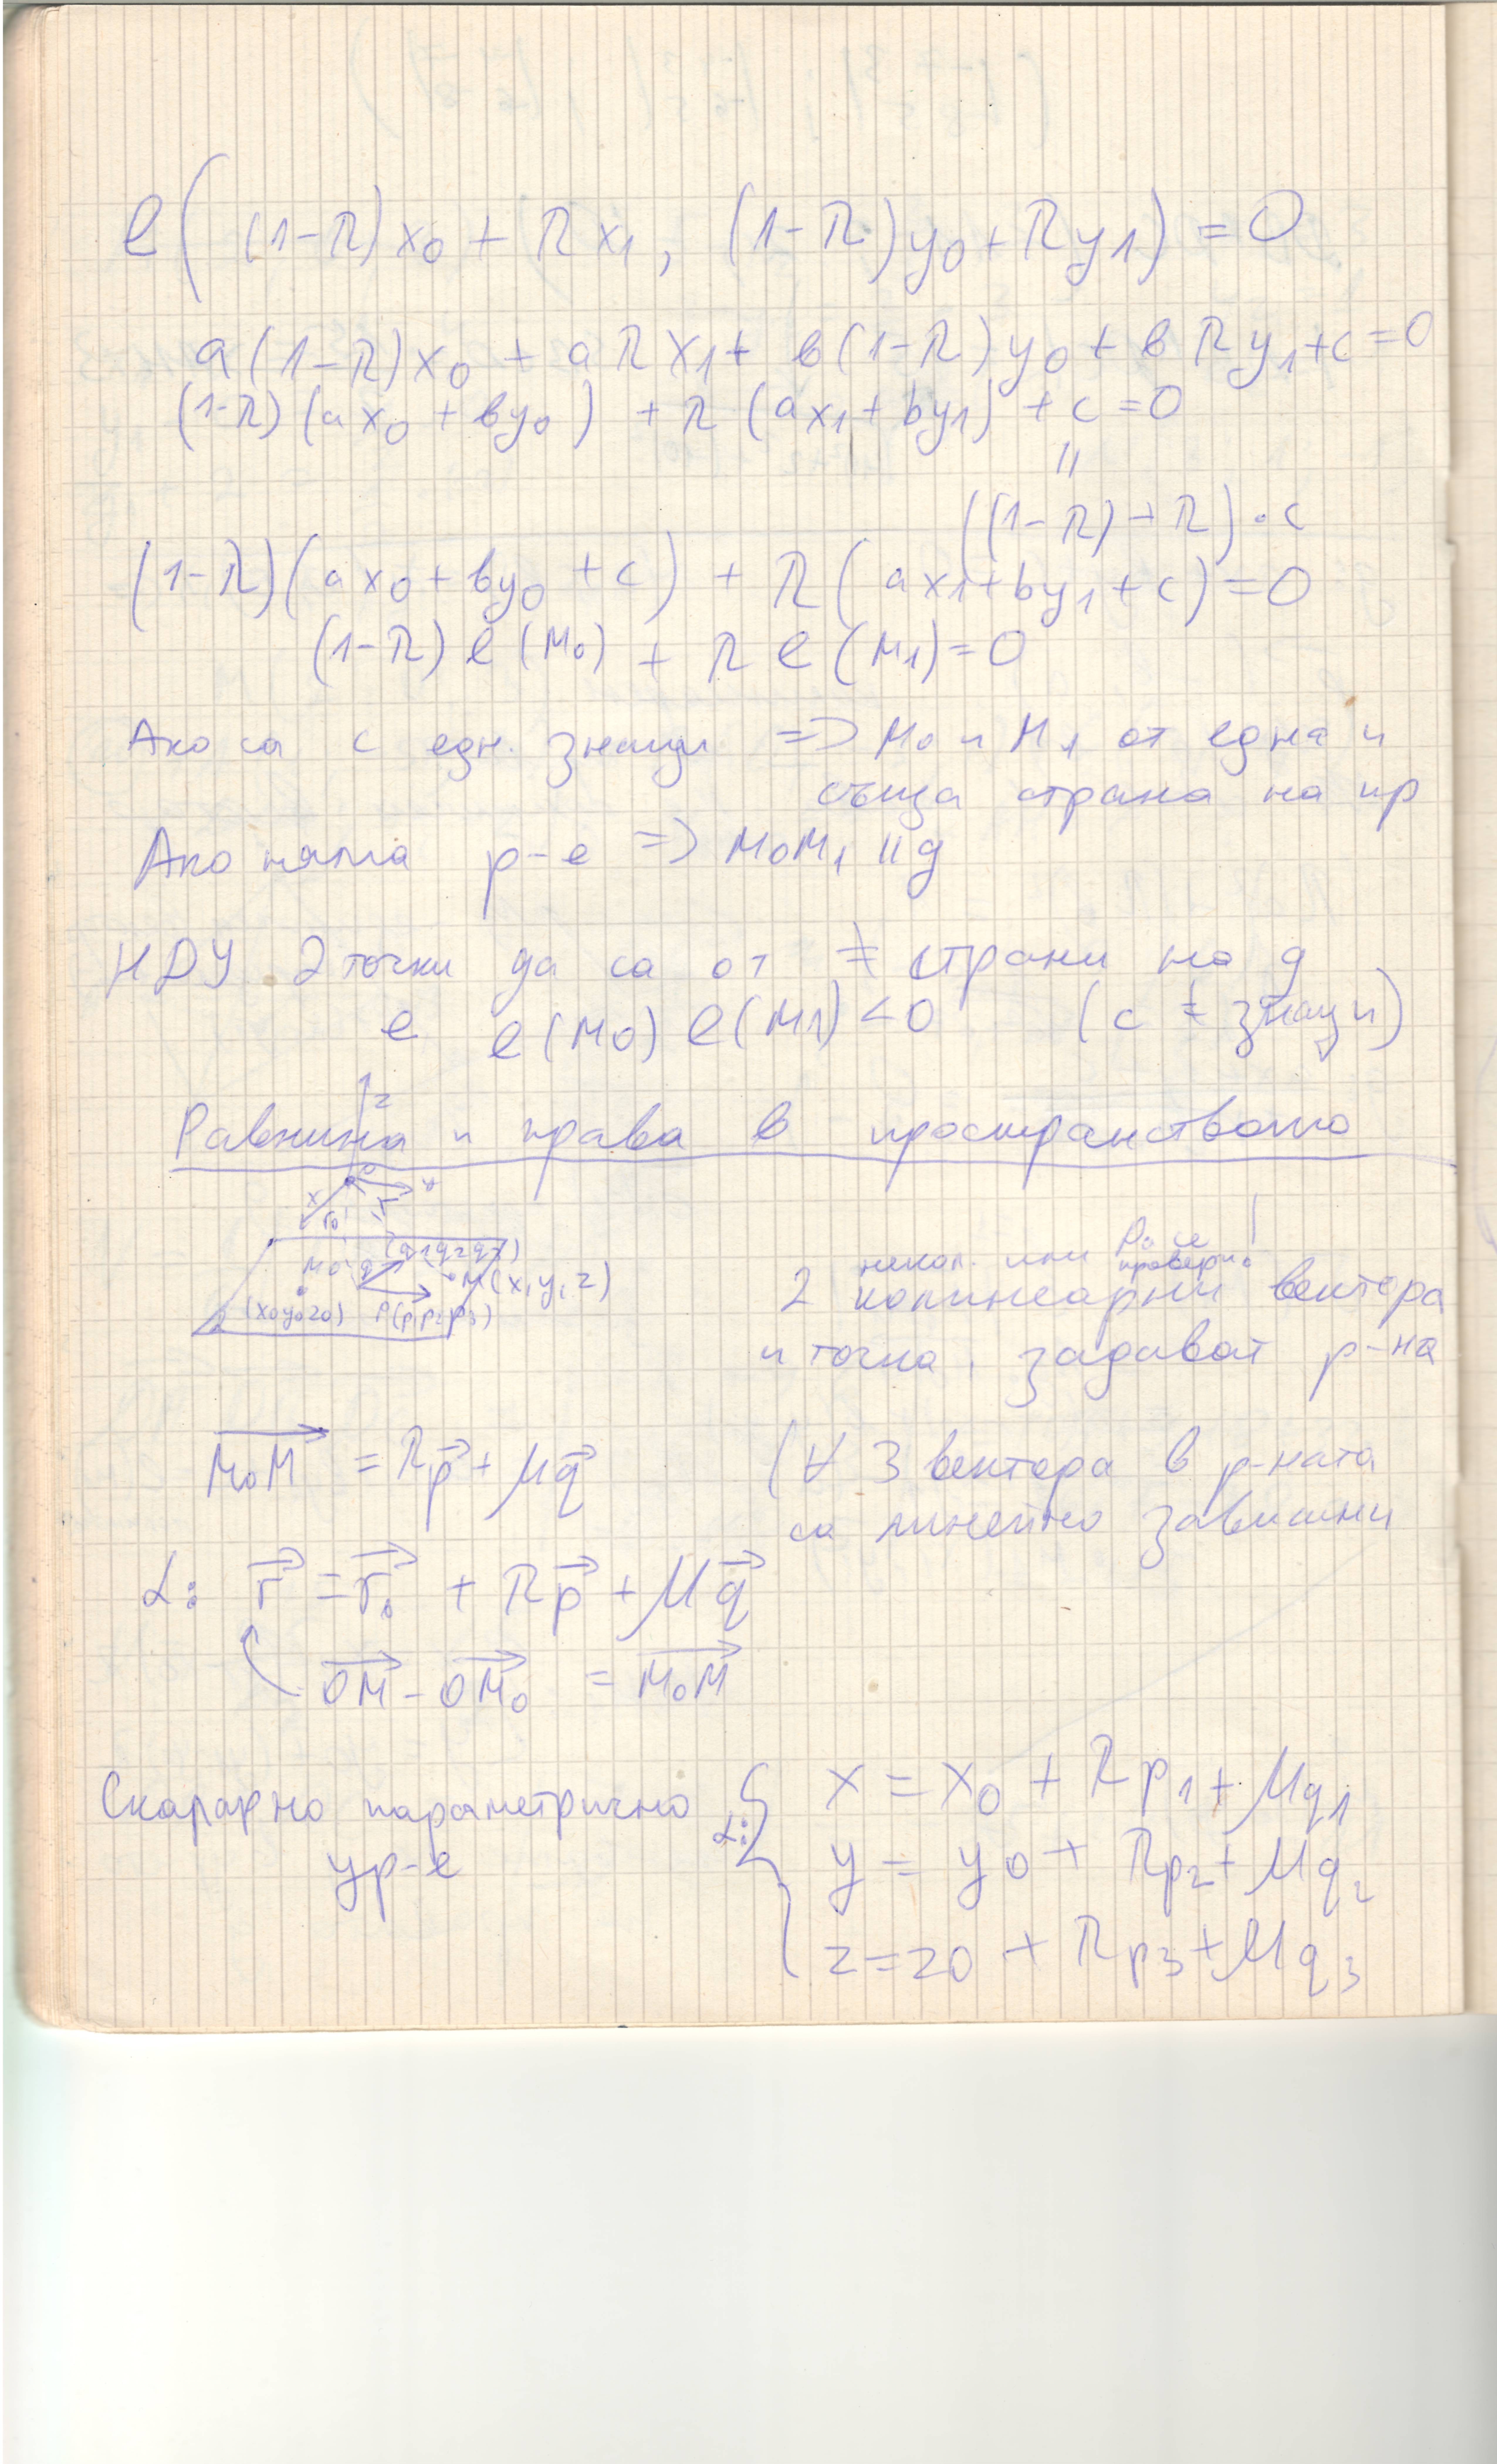 l((1-λ)x₀ + λx₁, (1-λ)y₀ + λy₁) = 0
a(1-λ)x₀ + aλx₁ + в(1-λ)y₀ + вλy₁ + c = 0
(1-λ)(ax₀ + вy₀) + λ(ax₁ + by₁) + c = 0
||
((1-λ) + λ)·c
(1-λ)(ax₀ + вy₀ + c) + λ(ax₁ + by₁ + c) = 0
(1-λ) l(M₀) + λ l(M₁) = 0
Ако са с едн. знаци => M₀ и M₁ от една и
съща страна на пр
Ако няма р-е => M₀M₁ || g
НДУ 2 точки да са от ≠ страни на g
е l(M₀) l(M₁) < 0 (с ≠ знаци)
Равнина и права в пространството
z
O
x
y
r₀
r
M₀
q
(q₁q₂q₃)
M(x,y,z)
(x₀y₀z₀)
P(p₁p₂p₃)
α
некол. или се провери!
2 колинеарни вектора
и точка задават р-на
M₀M = λp + μq
(∀ 3 вектора в р-ната
са линейно зависими
α: r = r₀ + λp + μq
OM - OM₀ = M₀M
Скаларно параметрично
ур-е
α: { x = x₀ + λp₁ + μq₁
y = y₀ + λp₂ + μq₂
z = z₀ + λp₃ + μq₃